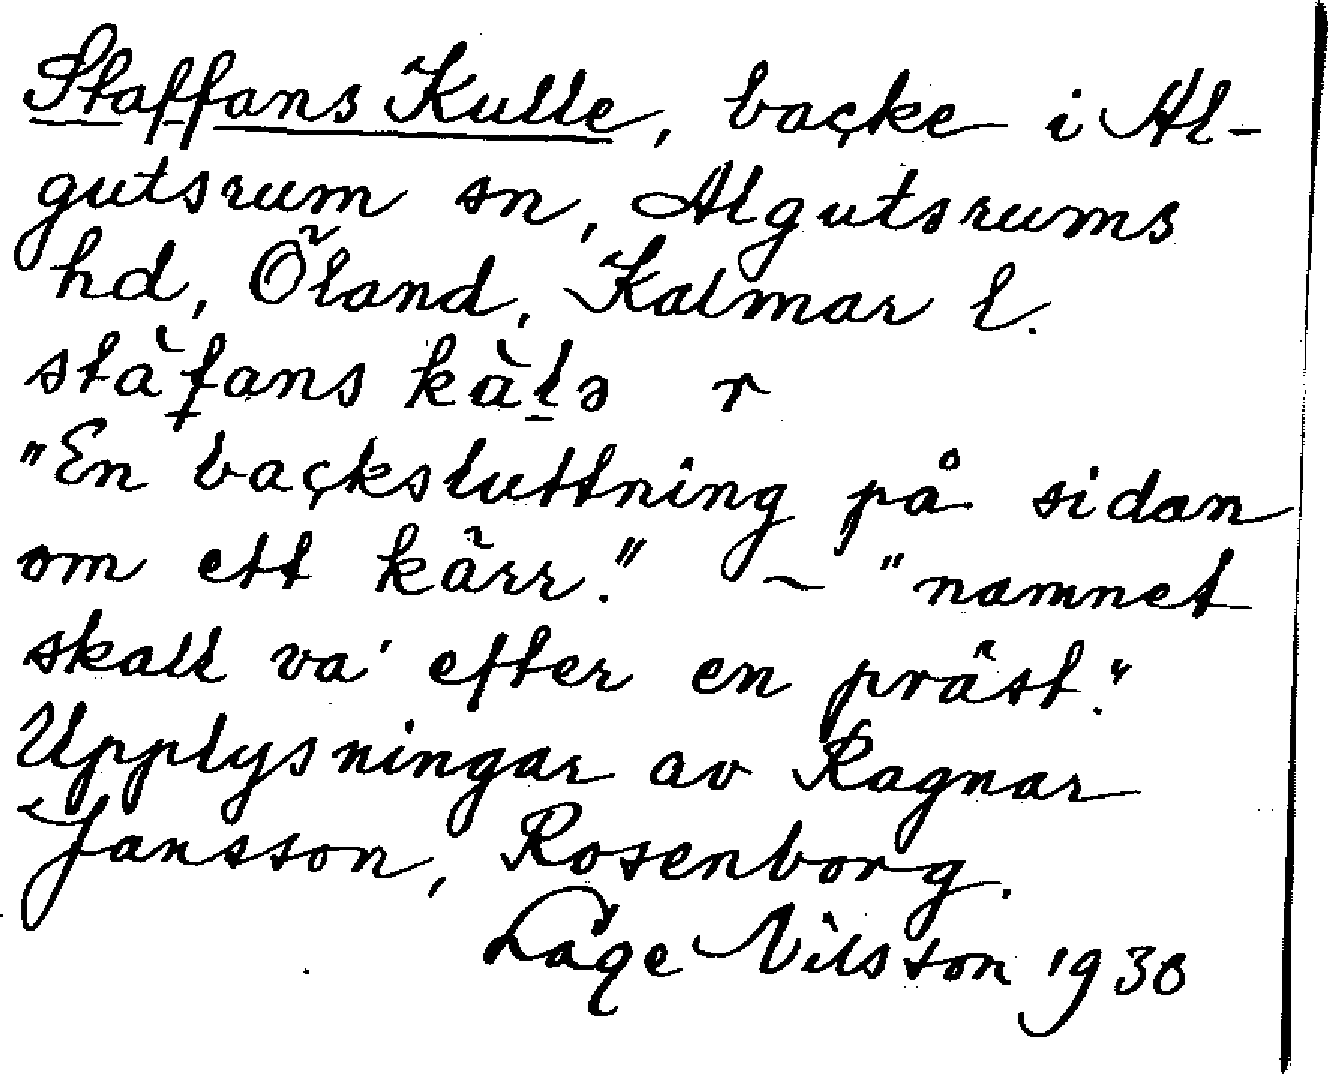 Staffans Kulle, backe i Al-
gutsrum sn, Algutsrums
hd, Öland, Kalmar l.
stàfans kàlə r
"En backsluttning på sidan
om ett kärr." – "namnet
skall va' efter en präst."
Upplysningar av Ragnar
Jansson, Rosenborg.
Låge Nilsson 1938